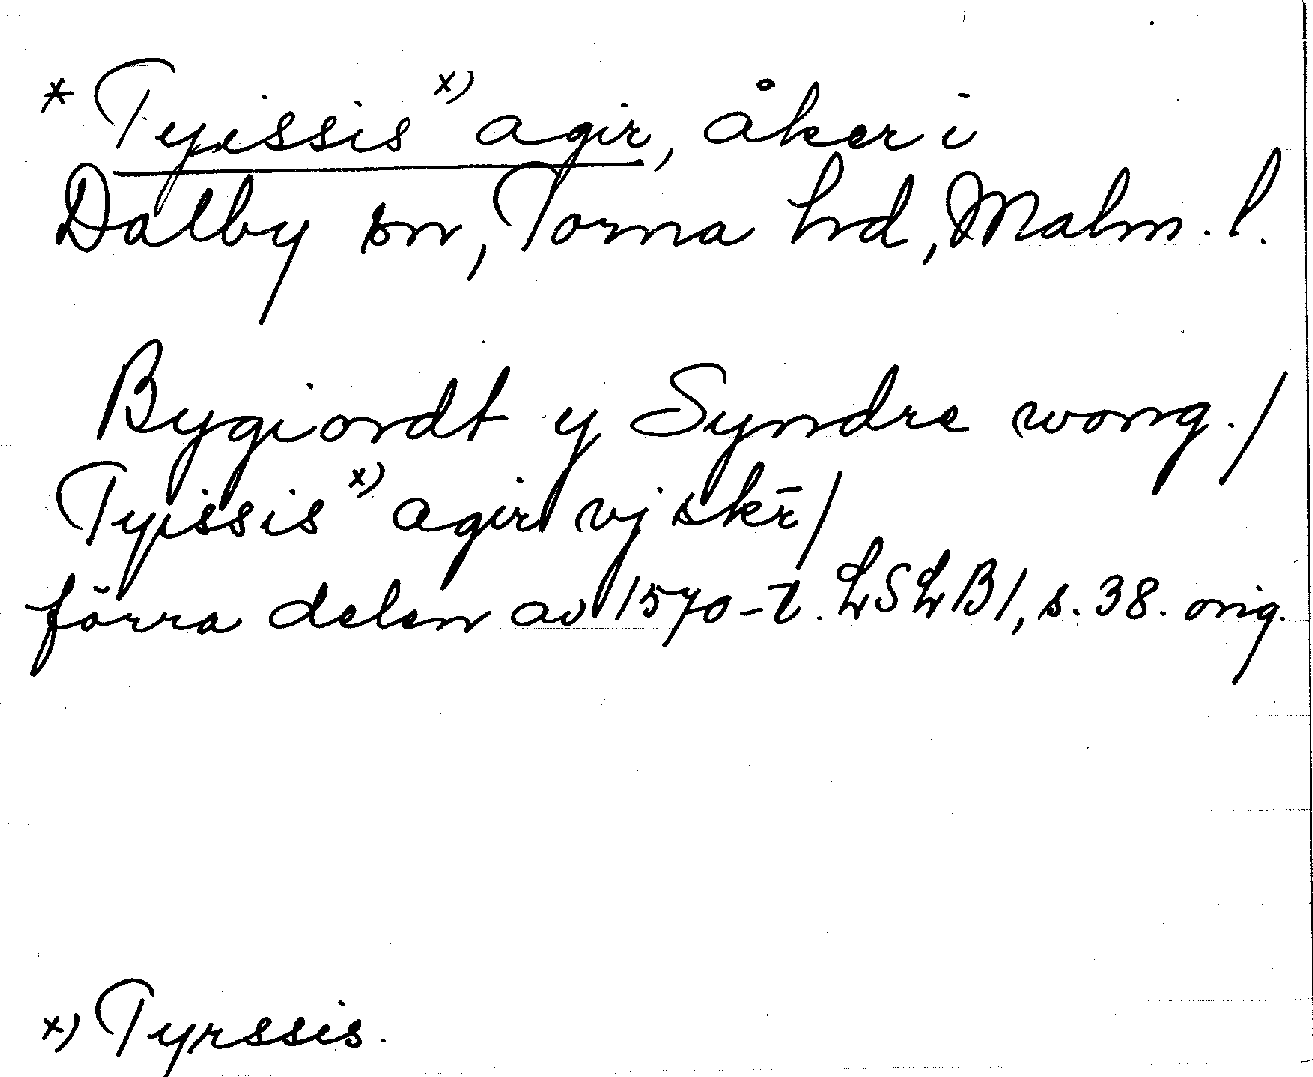 * Tyissis x) agir, åker i
Dalby sn, Torna hd, Malm. l.
Bygiordt y Syndre wong./
Tyissis x) agir vj skr̄/
förra delen av 1570-t. LSLB1, s. 38. orig.
x) Tyrssis.